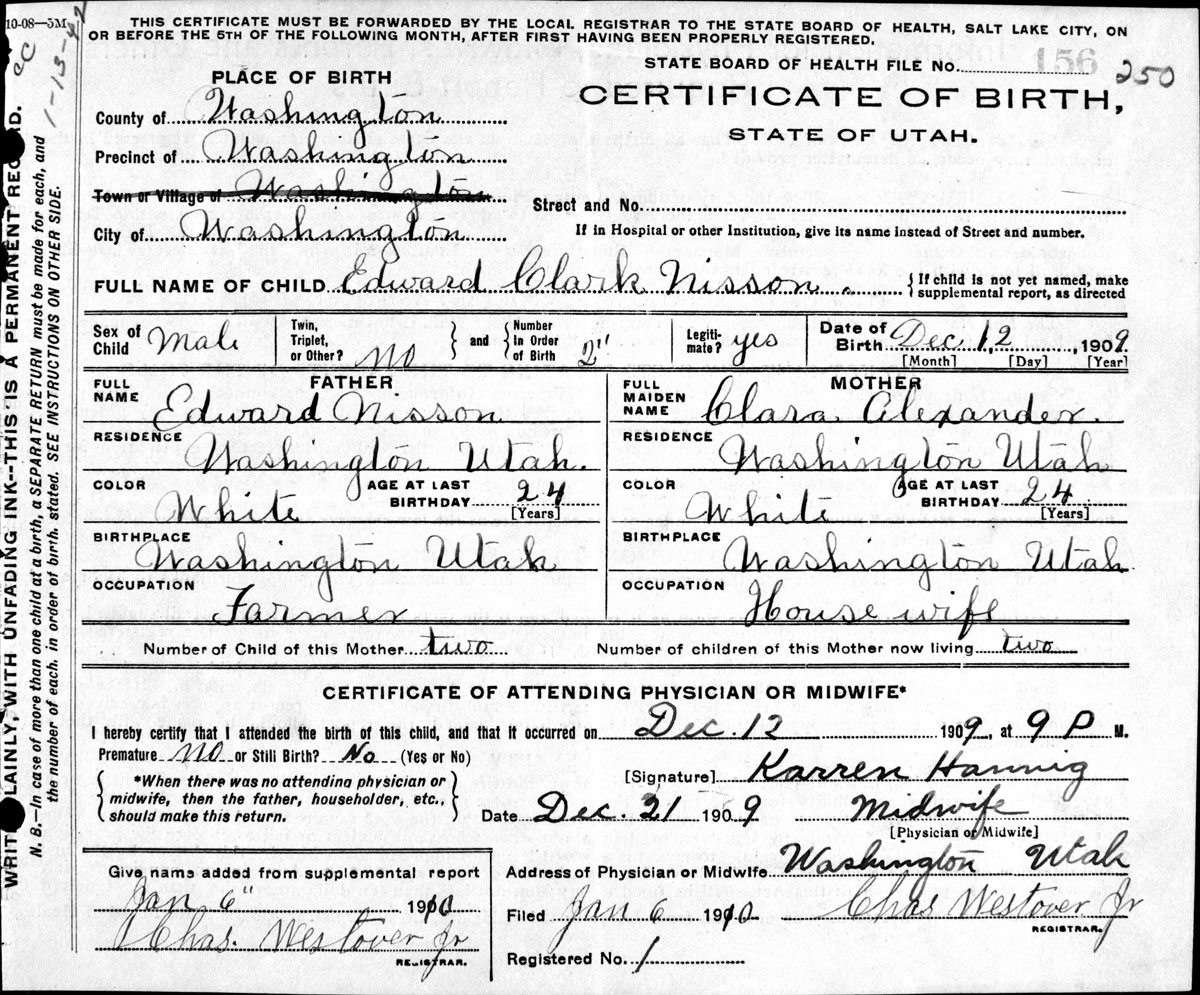 10-08—5M
THIS CERTIFICATE MUST BE FORWARDED BY THE LOCAL REGISTRAR TO THE STATE BOARD OF HEALTH, SALT LAKE CITY, ON
OR BEFORE THE 5TH OF THE FOLLOWING MONTH, AFTER FIRST HAVING BEEN PROPERLY REGISTERED.
STATE BOARD OF HEALTH FILE No. 156 250
PLACE OF BIRTH
CERTIFICATE OF BIRTH,
STATE OF UTAH.
County of Washington
Precinct of Washington
Town or Village of Washington
City of Washington
Street and No.
If in Hospital or other Institution, give its name instead of Street and number.
FULL NAME OF CHILD Edward Clark Nisson. { If child is not yet named, make
supplemental report, as directed
Sex of Child Male
Twin, Triplet, or Other? NO } and { Number In Order of Birth 2"
Legiti-mate? yes
Date of Birth Dec 12, 1909
[Month] [Day] [Year]
FATHER
FULL NAME Edward Nisson
RESIDENCE Washington Utah.
COLOR White AGE AT LAST BIRTHDAY 24 [Years]
BIRTHPLACE Washington Utah
OCCUPATION Farmer
MOTHER
FULL MAIDEN NAME Clara Alexander.
RESIDENCE Washington Utah
COLOR White AGE AT LAST BIRTHDAY 24 [Years]
BIRTHPLACE Washington Utah
OCCUPATION House wife
Number of Child of this Mother two Number of children of this Mother now living two
CERTIFICATE OF ATTENDING PHYSICIAN OR MIDWIFE*
I hereby certify that I attended the birth of this child, and that it occurred on Dec. 12 1909, at 9 P M.
Premature NO or Still Birth? No (Yes or No)
{ *When there was no attending physician or
midwife, then the father, householder, etc.,
should make this return. }
[Signature] Karren Hannig
Date Dec. 21 1909 Midwife
[Physician or Midwife]
Address of Physician or Midwife Washington Utah
Filed Jan 6 1910 Chas Westover Jr
REGISTRAR.
Registered No. 1
Give name added from supplemental report
Jan 6" 1910
Chas. Westover Jr
REGISTRAR.
LAINLY, WITH UNFADING INK--THIS IS A PERMANENT
N. B.—In case of more than one child at a birth, a SEPARATE RETURN must be made for each, and
the number of each, in order of birth, stated. SEE INSTRUCTIONS ON OTHER SIDE.